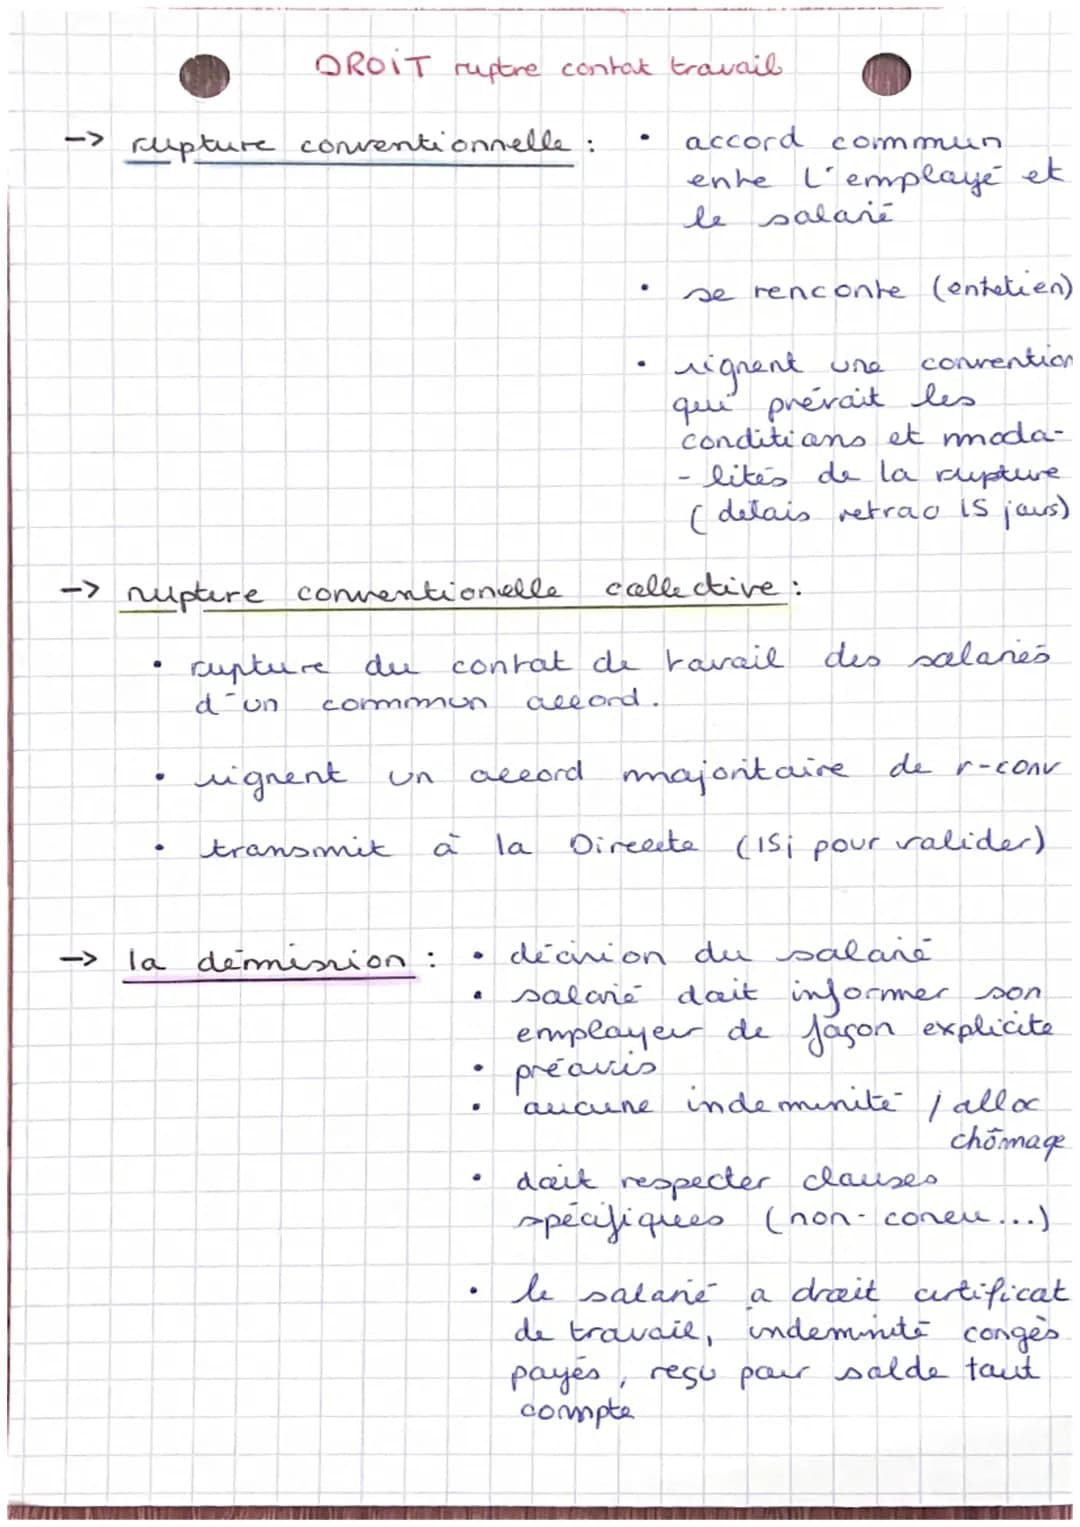 DROIT ruptre contrat travail
-> rupture conventionnelle : • accord commun
entre l'employé et
le salarié
• se rencontre (entretien)
• signent une convention
qui prévoit les
conditions et moda-
- lités de la rupture
( délais retrac 15 jours)
-> rupture conventionelle collective :
• rupture du contrat de travail des salariés
d'un commun accord.
• signent un accord majoritaire de r-conv
• transmit à la Direccte (15j pour valider)
-> la démission : • décision du salarié
• salarié doit informer son
employer de façon explicite
• préavis
• aucune indeminité / alloc
chômage
• doit respecter clauses
spécifiques (non-concu...)
• le salarié a droit certificat
de travail, indeminité congés
payés, reçu pour solde tout
compte